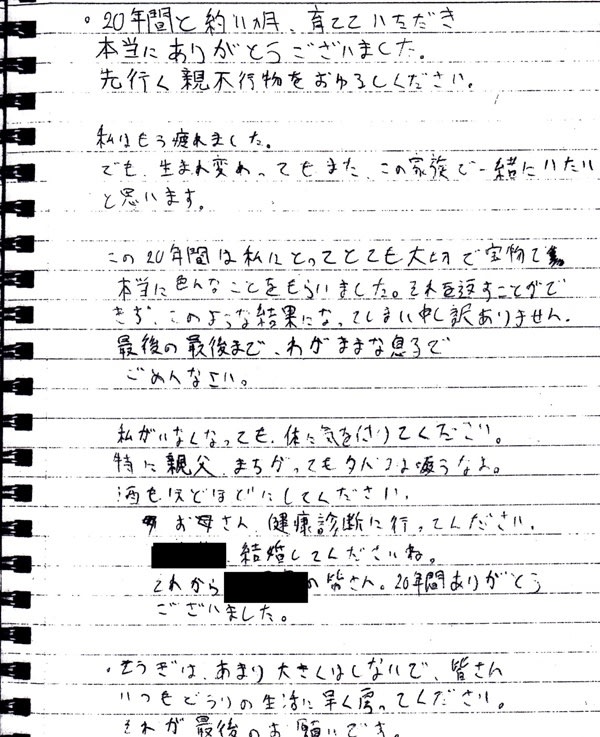 ・20年間と約11カ月、育てていただき
本当にありがとうございました。
先行く親不行物をおゆるしください。
私はもう疲れました。
でも、生まれ変わってもまた、この家族で一緒にいたい
と思います。
この20年間は私にとってとても大切で宝物で
本当に色んなことをもらいました。それを返すことがで
きず、このような結果になってしまい申し訳ありません。
最後の最後まで、わがままな息子で
ごめんなさい。
私がいなくなっても、体に気を付けてください。
特に親父、まちがってもタバコは吸うなよ。
酒もほどほどにしてください。
お母さん、健康診断に行ってください。
結婚してくださいね。
それから の皆さん。20年間ありがとう
ございました。
・そうぎは、あまり大きくはしないで、皆さん
いつもどうりの生活に早く戻ってください。
それが最後のお願いです。